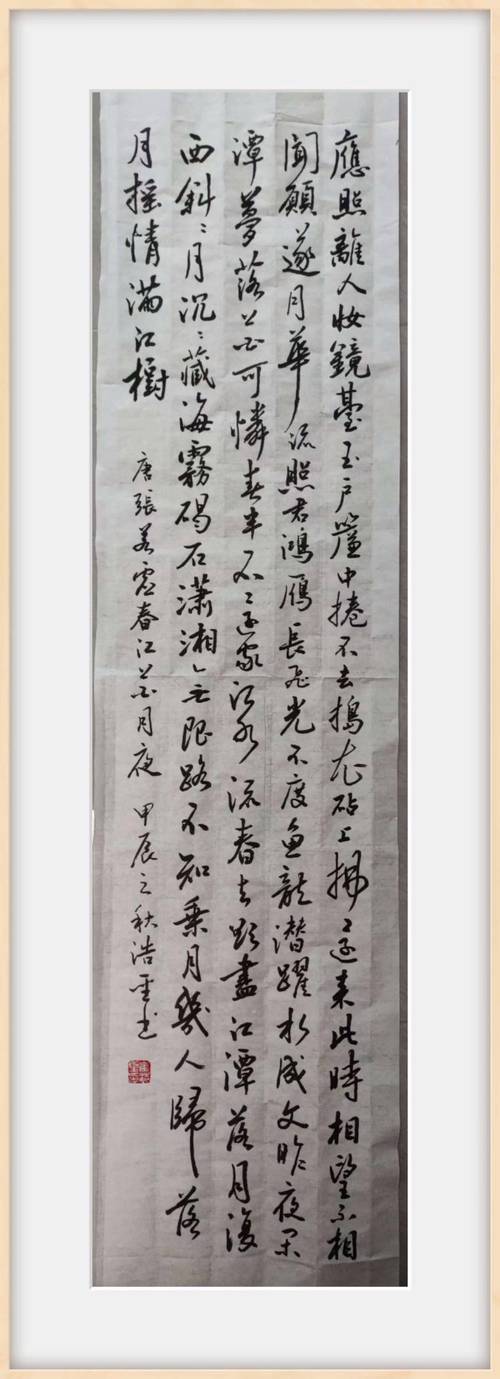 應照離人妝鏡臺玉户簾中捲不去搗衣砧上拂還來此時相望不相
聞願逐月華流照君鴻雁長飛光不度魚龍潛躍水成文昨夜閑
潭夢落花可憐春半不還家江水流春去欲盡江潭落月復
西斜〻月沉〻藏海霧碣石瀟湘無限路不知乘月幾人歸落
月摇情滿江樹
唐張若虛春江花月夜 甲辰之秋浩书